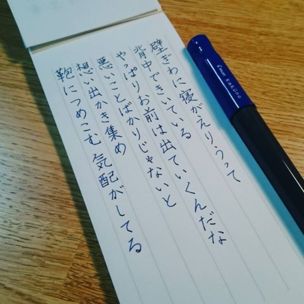 壁ぎわに寝がえりうって
背中できいている
やっぱりお前は出ていくんだな
悪いことばかりじゃないと
想い出かき集め
鞄につめこむ気配がしてる